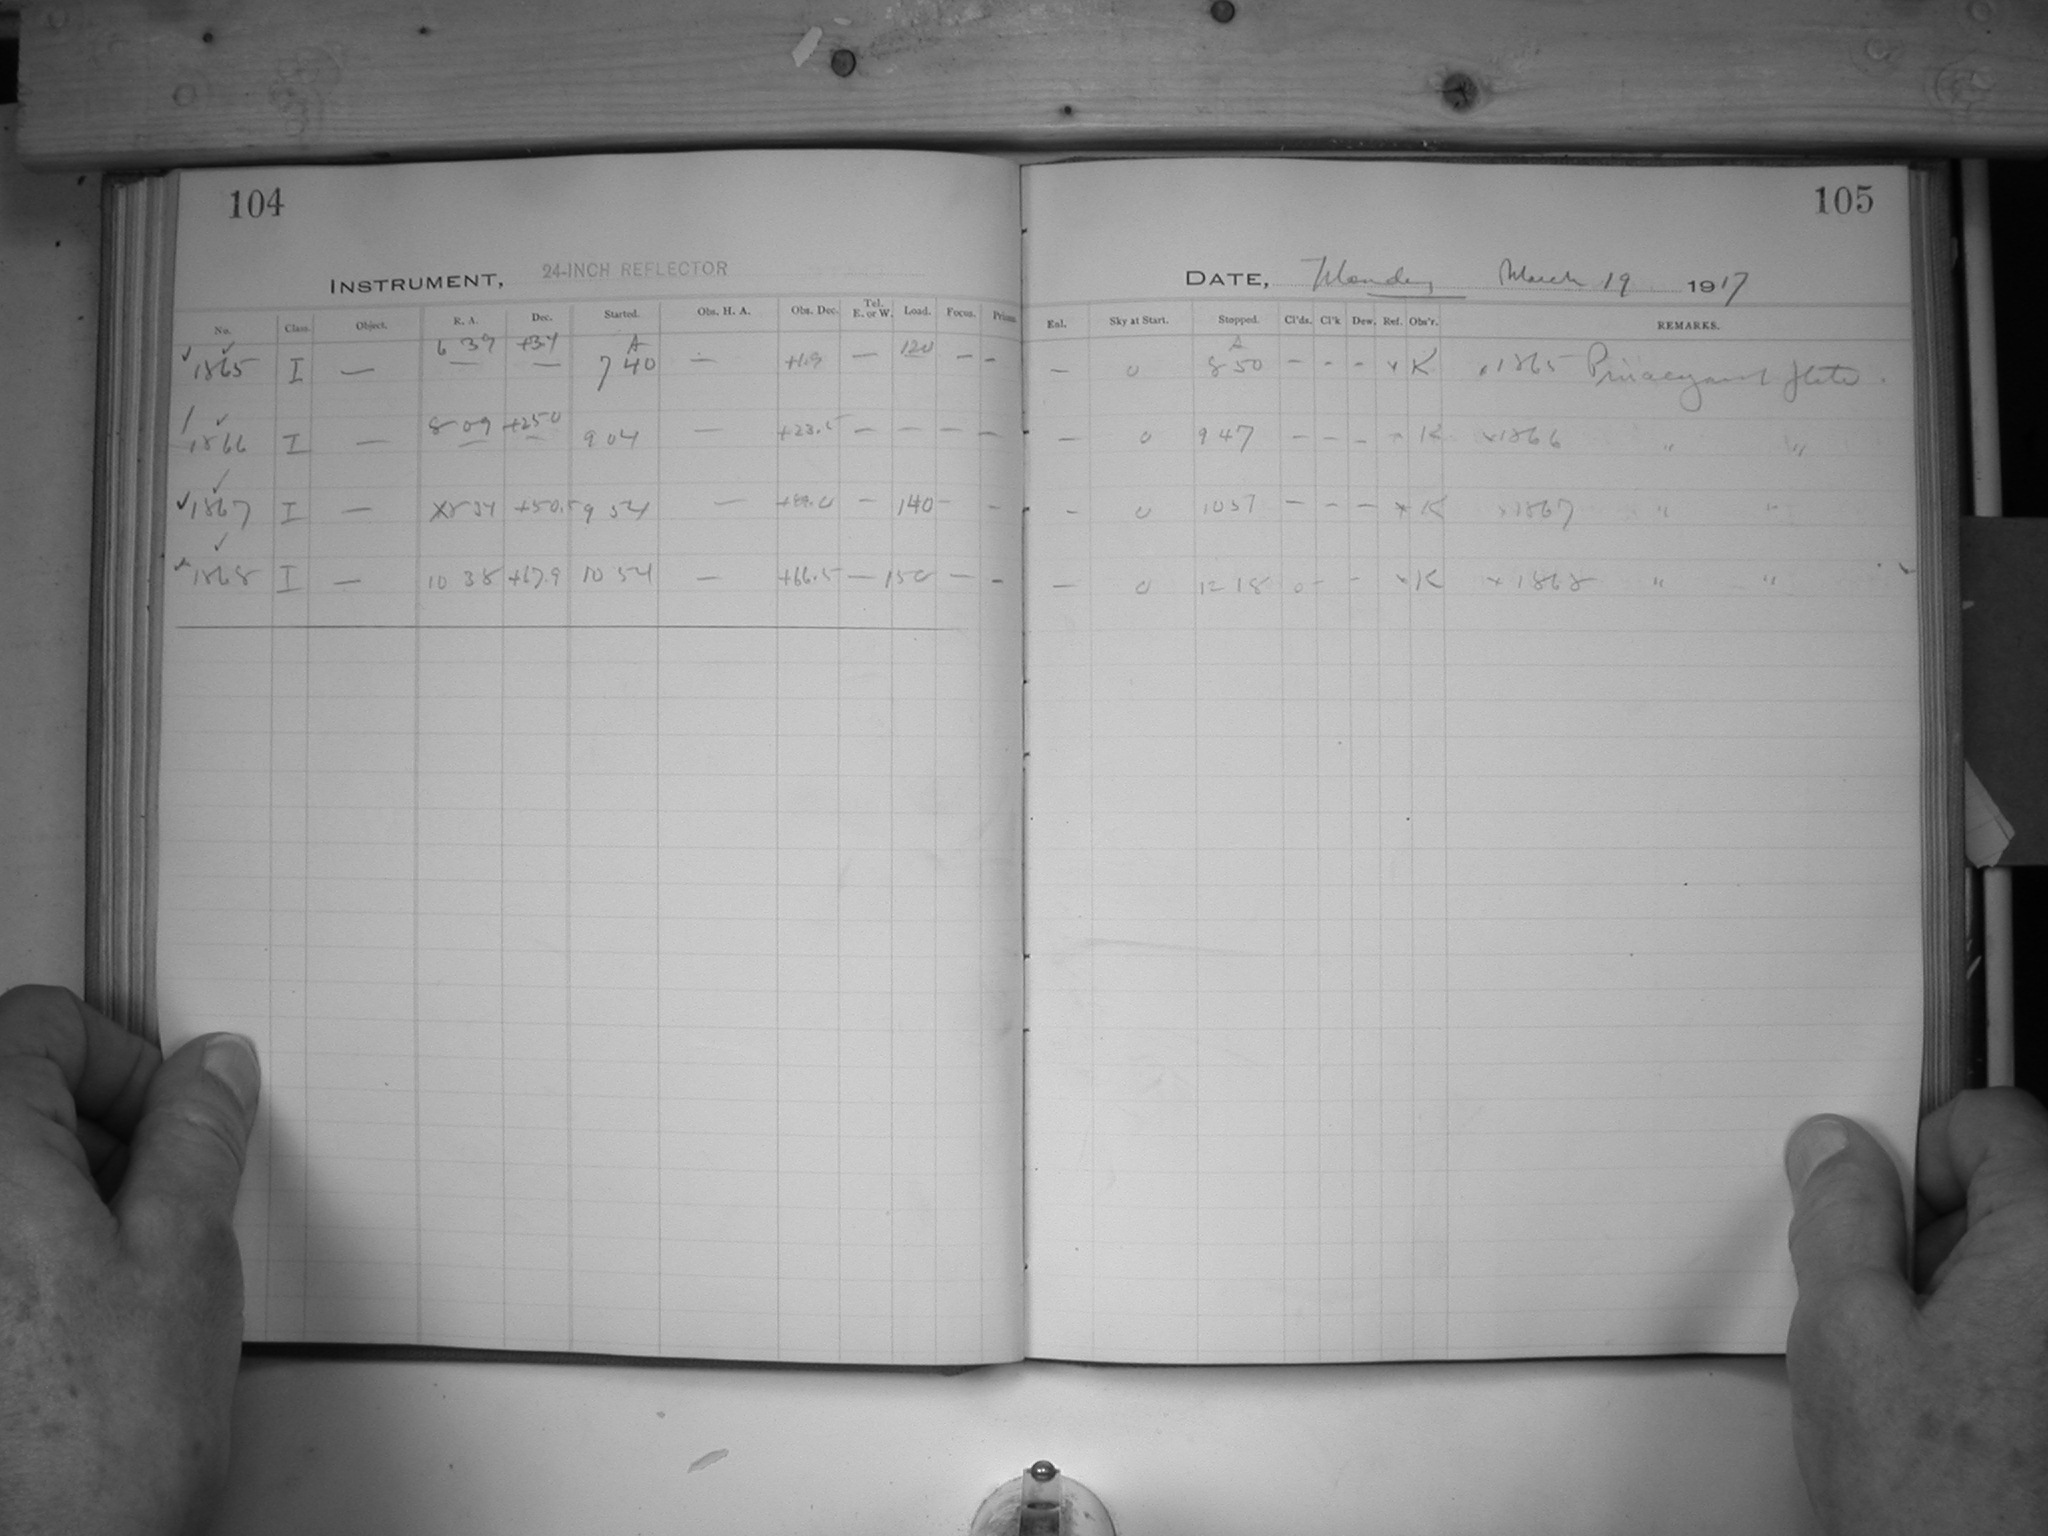 104
INSTRUMENT, 24-INCH REFLECTOR
No. Class. Object. R. A. Dec. Started. Obs. H. A. Obs. Dec. Tel. E. or W. Load. Focus. Prism.
1865 I — 6 39 +3.4 7 40 — +1.9 — 120 — —
1866 I — 8 09 +25.0 9 04 — +23.5 — — — —
1867 I — 8 34 +50.5 9 54 — — 140 — —
1868 I — 10 38 +67.9 10 54 — +66.5 — 150 — —
105
DATE, Monday March 19 1917
Enl. Sky at Start. Stopped. Cl'ds. Cl'k Dew. Ref. Obs'r. REMARKS.
— 0 8 50 — — — x K x 1865
— 0 9 47 — — — x K x 1866 " "
— 0 10 37 — — — x K x 1867 " "
— 0 12 18 0 — — x K x 1868 " "